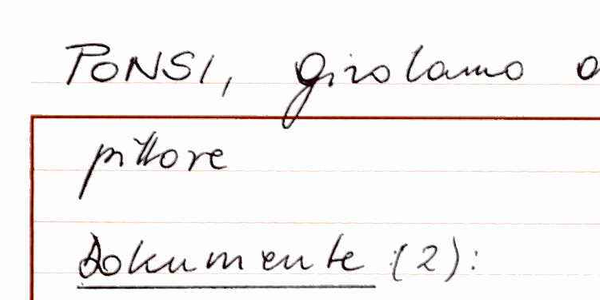 PONSI, Girolamo
pittore
Dokumente (2):